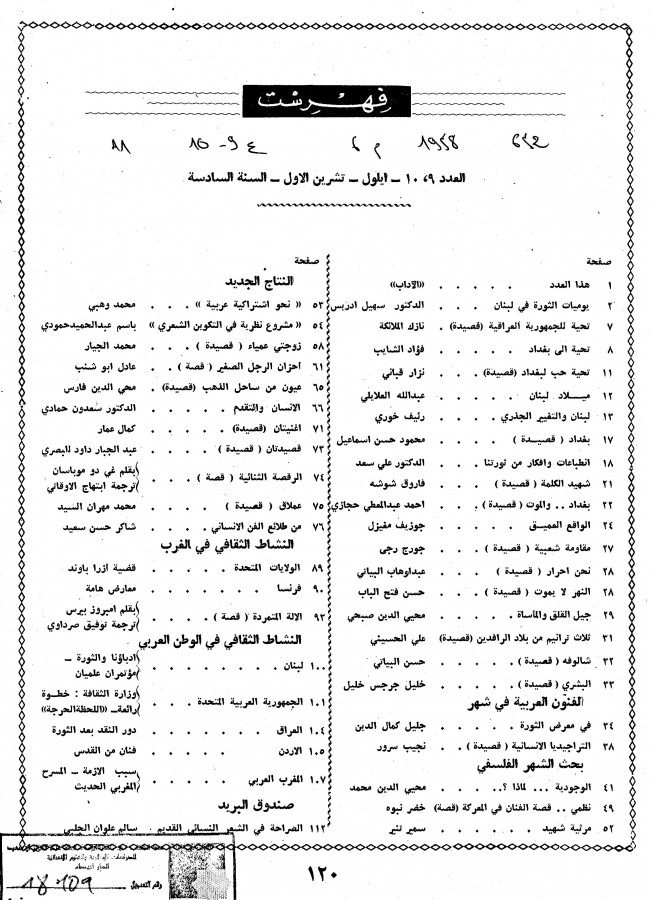 فهرست
642 1958 م 6 ع 9-10 11
العدد ٩، ١٠ - ايلول - تشرين الاول - السنة السادسة
صفحة
١ هذا العدد . . . . . «الآداب»
٢ يوميات الثورة في لبنان . . . الدكتور سهيل ادريس
٧ تحية للجمهورية العراقية (قصيدة) . نازك الملائكة
٨ تحية الى بغداد . . . . . فؤاد الشايب
١١ تحية حب لبغداد (قصيدة) . . . نزار قباني
١٢ ميـــلاد لبنان . . . . عبدالله العلايلي
١٣ لبنان والتغيير الجذري . . . رئيف خوري
١٧ بغداد ( قصيـدة ) . . . . محمود حسن اسماعيل
١٨ انطباعات وافكار من ثورتنا . . الدكتور علي سعد
٢١ شهيد الكلمة ( قصيدة ) . . . فاروق شوشه
٢٢ بغداد .. والموت ( قصيدة ) . . احمد عبدالمعطي حجازي
٢٤ الواقع العميـق . . . . جوزيف مغيزل
٢٧ مقاومة شعبية ( قصيدة ) . . . جورج رجى
٢٨ نحن احرار ( قصيدة ) . . . عبدالوهاب البياتي
٢٨ النهر لا يموت ( قصيدة ) . . حسن فتح الباب
٢٩ جيل القلق والمأساة . . . . محيي الدين صبحي
٣١ ثلاث ترانيم من بلاد الرافدين (قصيدة) علي الحسيني
٣٢ شالوفه ( قصيدة ) . . . . حسن البياتي
٣٣ البشرى ( قصيدة ) . . . . . خليل جرجس خليل
الفنون العربية في شهر
٣٤ في معرض الثورة . . . . . جليل كمال الدين
٣٨ التراجيديا الانسانية ( قصيدة ) . . نجيب سرور
بحث الشهر الفلسفي
٤١ الوجودية ... لماذا ؟ . . . . محيي الدين محمد
٤٩ نظمي .. قصة الفنان في المعركة (قصة) خضر نبوه
٥٢ مرثية شهيد . . . . . سمير تنير
صفحة
النتاج الجديد
٥٣ « نحو اشتراكية عربية » . . . محمد وهبي
٥٤ « مشروع نظرية في التكوين الشعري » باسم عبدالحميدحمودي
٥٨ زوجتي عمياء ( قصيدة ) . . . محمد الجيار
٦١ احزان الرجل الصغير ( قصة ) . . عادل ابو شنب
٦٥ عيون من ساحل الذهب (قصيدة) . محي الدين فارس
٦٦ الانسان والتقدم . . . . . الدكتور سعدون حمادي
٧١ اغنيتان (قصيدة) . . . . . كمال عمار
٧٣ قصيدتان ( قصيدة ) . . . عبد الجبار داود البصري
٧٤ الرقصة الثنائية ( قصة ) . . . بقلم غي دو موباسان
ترجمة ابتهاج الاوقاتي
٧٥ عملاق ( قصيدة ) . . . . محمد مهران السيد
٧٦ من طلائع الفن الانساني . . . شاكر حسن سعيد
النشاط الثقافي في الغرب
٨٩ الولايات المتحدة . . . . . قضية ازرا باوند
٩٠ فرنسا . . . . . . معارض هامة
٩٣ الالة المتمردة ( قصة ) . . . بقلم امبروز بيرس
ترجمة توفيق صرداوي
النشاط الثقافي في الوطن العربي
١٠٠ لبنان . . . . . . . ادباؤنا والثورة -
مؤتمران علميان
١٠١ الجمهورية العربية المتحدة . . . وزارة الثقافة : خطـوة
رائعة - «اللحظةالحرجة»
١٠٤ العراق . . . . . . دور النقد بعد الثورة
١٠٥ الاردن . . . . . . فنان من القدس
١٠٧ المغرب العربي . . . . . سبب الازمة - المسرح
المغربي الحديث
صندوق البريد
١١٢ الصراحة في الشعر النسائي القديم . سالم علوان الجلبي
١٢٠
رقم التسجيل 18109